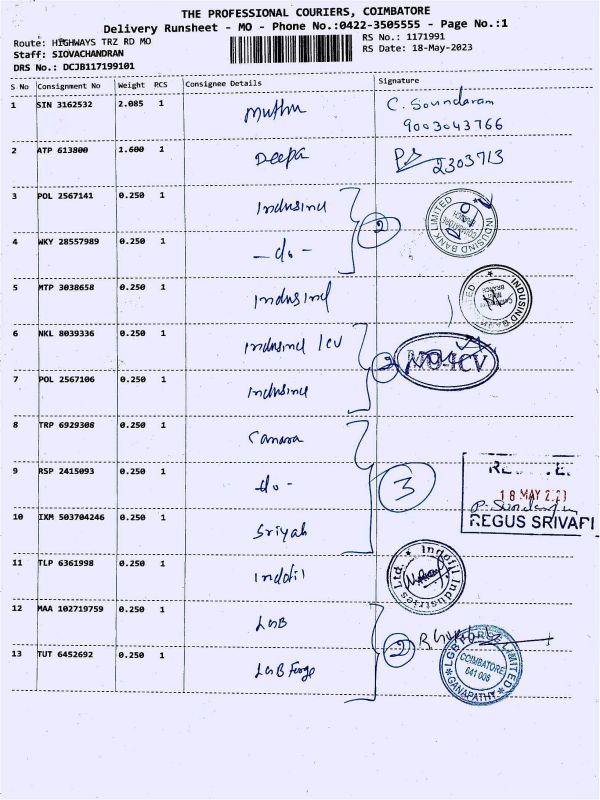 THE PROFESSIONAL COURIERS, COIMBATORE
Delivery Runsheet - MO - Phone No.:0422-3505555 - Page No.:1
Route: HIGHWAYS TRZ RD MO
RS No.: 1171991
Staff: SIOVACHANDRAN
RS Date: 18-May-2023
DRS No.: DCJB117199101
S No Consignment No Weight RCS Consignee Details Signature
1 SIN 3162532 2.085 1 Muthu C. Soundaram
9003043766
2 ATP 613800 1.600 1 Deepa 2303713
3 POL 2567141 0.250 1 Indusind
2
INDUSIND BANK LIMITED
COIMBATORE
BRANCH
4 WKY 28557989 0.250 1 -do-
5 MTP 3038658 0.250 1 Indusind
INDUSIND BANK LIMITED
BRANCH
6 NKL 8039336 0.250 1 Indusind ICV
2
MO-ICV
7 POL 2567106 0.250 1 Indusind
8 TRP 6929308 0.250 1 Canara
9 RSP 2415093 0.250 1 -do-
3
18 MAY 2023
REGUS SRIVARI
10 IXM 503704246 0.250 1 Sriyah
11 TLP 6361998 0.250 1 Indofil
Ingofil Industries Ltd.
12 MAA 102719759 0.250 1 LGB
2
13 TUT 6452692 0.250 1 LGB Forge
LGB FORGE LIMITED
COIMBATORE
641 006
GANAPATHY